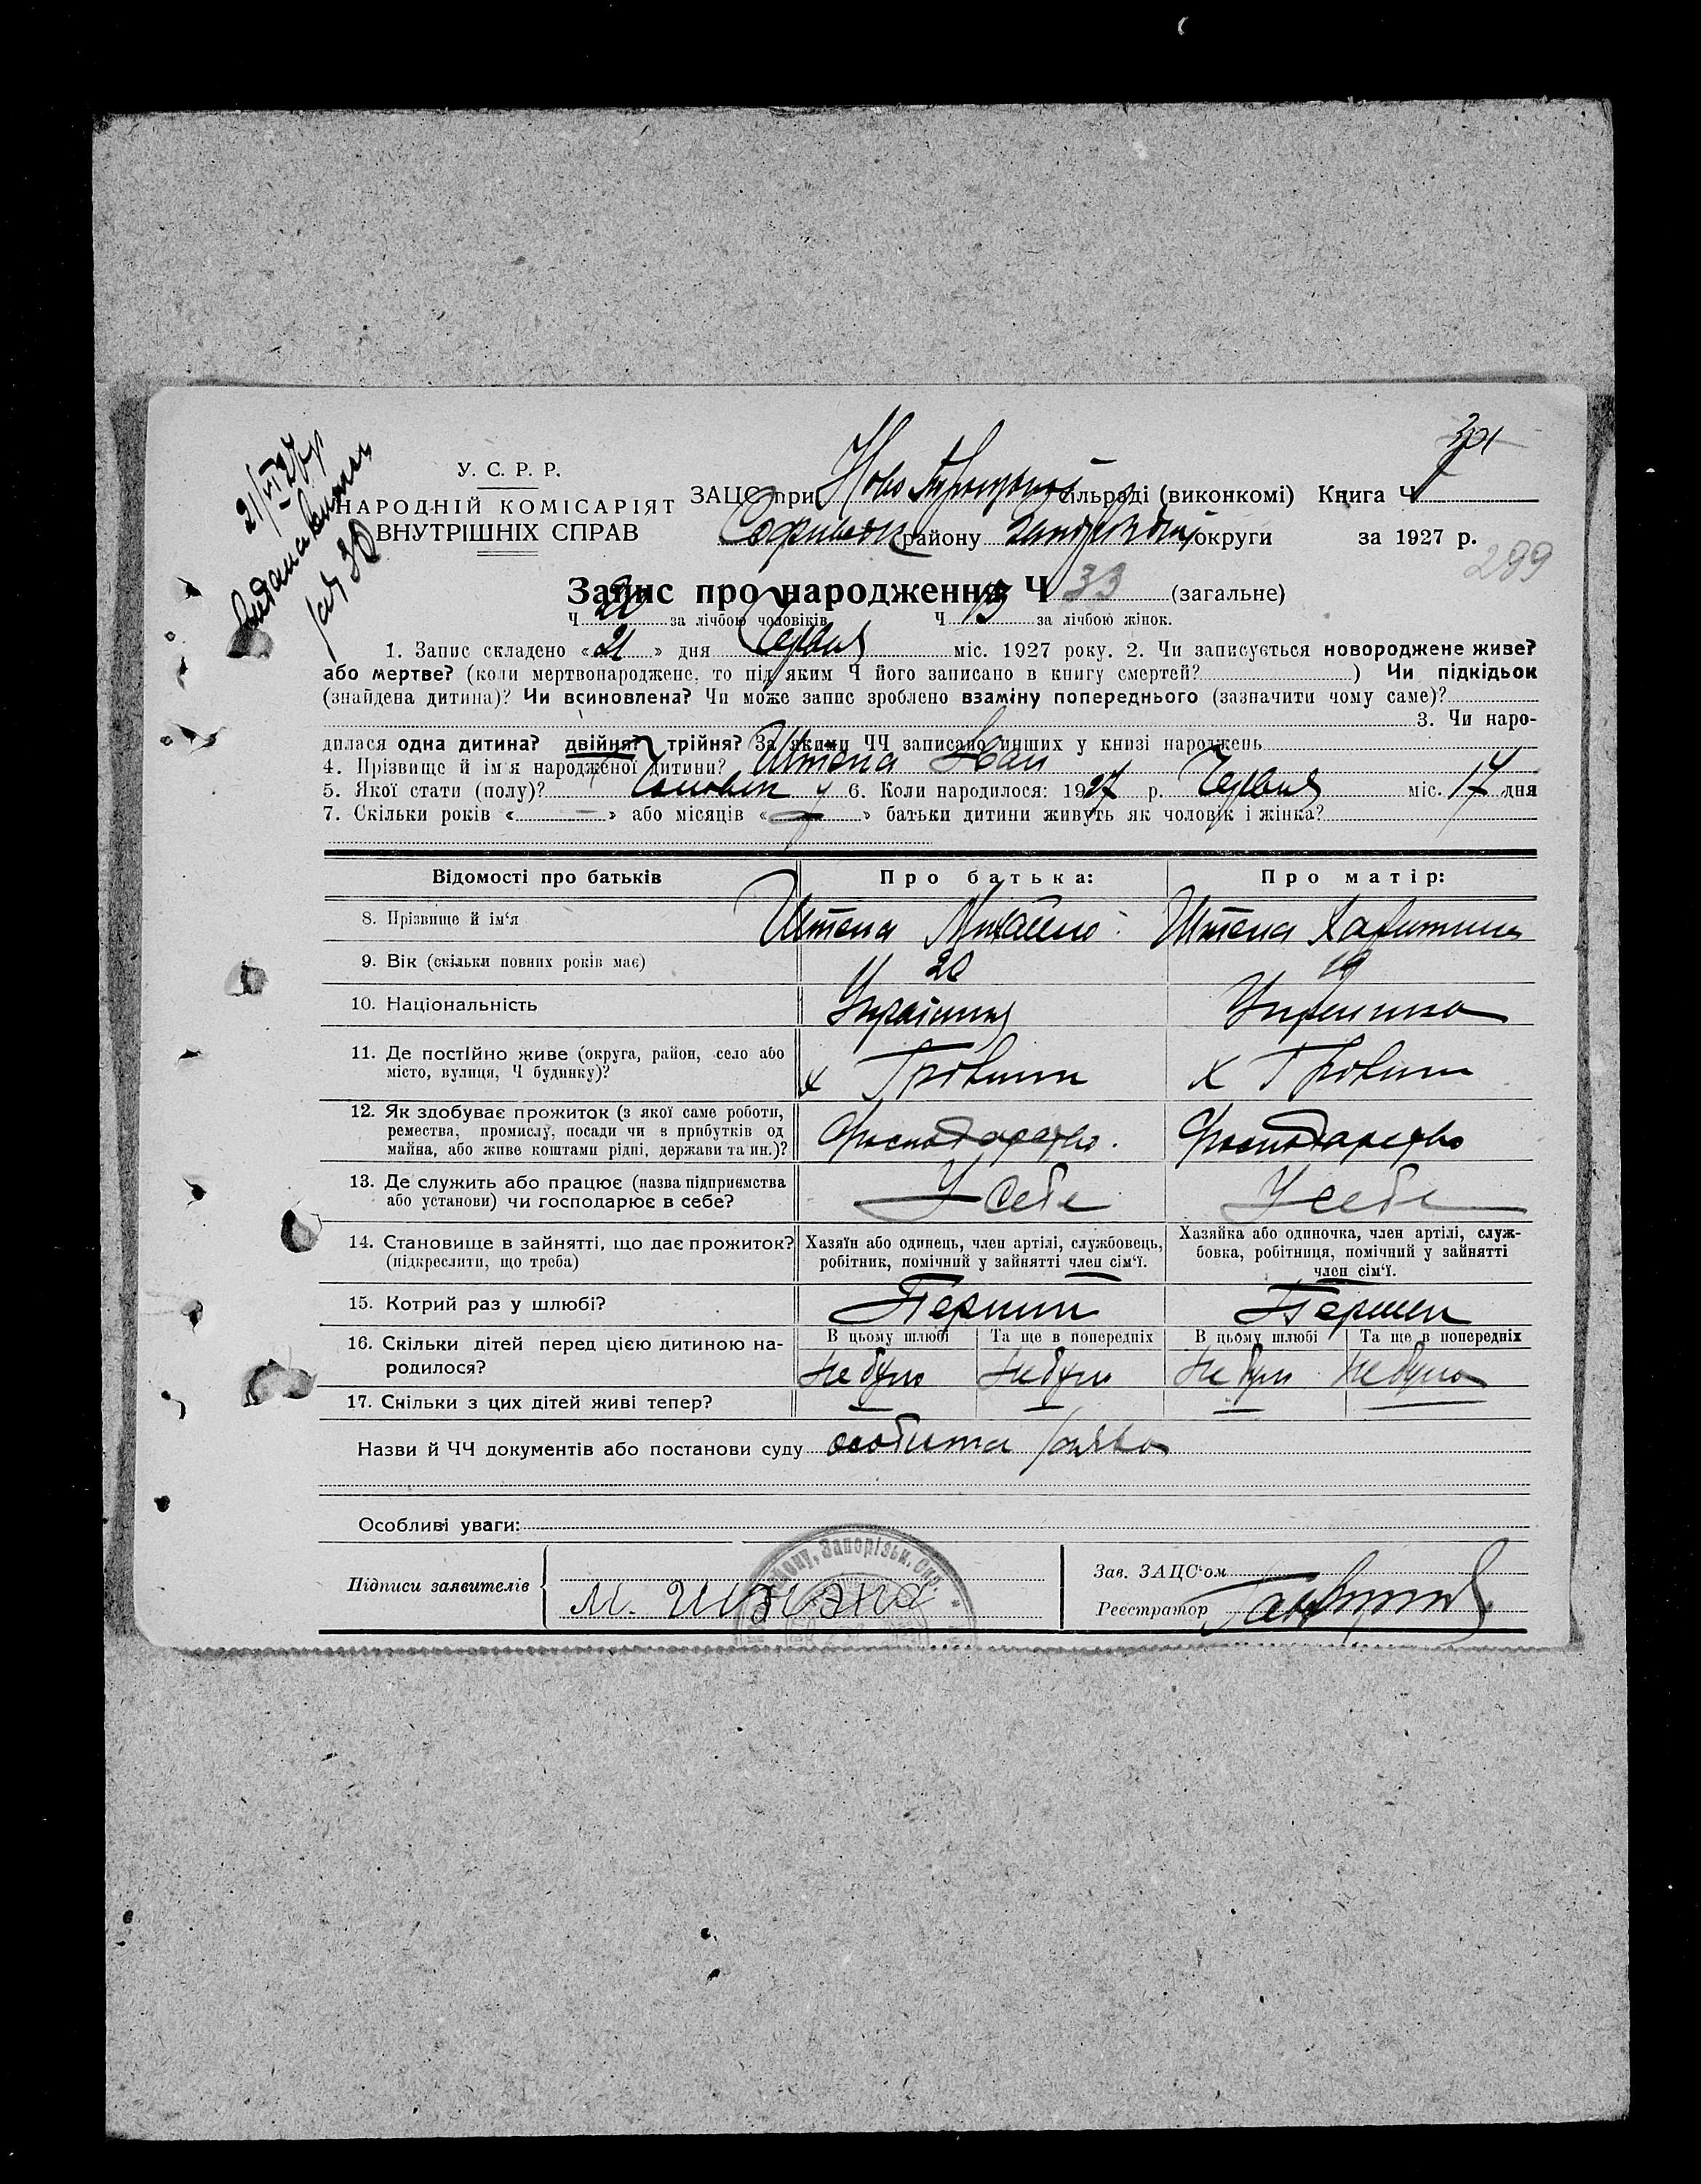 301
21/VI 27 р
У. С. Р. Р.
НАРОДНІЙ КОМІСАРІЯТ
ВНУТРІШНІХ СПРАВ
ЗАЦС при Ново сільраді (виконкомі) Книга Ч
району округи за 1927 р.
299
Запис про народження Ч 33 (загальне)
Ч 20 за лічбою чоловіків Ч 13 за лічбою жінок.
1. Запис складено «21» дня Червня міс. 1927 року. 2. Чи записується новороджене живе?
або мертве? (коли мертвонароджене, то під яким Ч його записано в книгу смертей? ) Чи підкідьок
(знайдена дитина)? Чи всиновлена? Чи може запис зроблено взаміну попереднього (зазначити чому саме)?
3. Чи наро-
дилася одна дитина? двійня? трійня? За якими ЧЧ записано инших у книзі народжень
4. Прізвище й ім'я народженої дитини? Штепа Іван
5. Якої стати (полу)? 6. Коли народилося: 1927 р. Червня міс. 17 дня
7. Скільки років « — » або місяців « — » батьки дитини живуть як чоловік і жінка?
Відомості про батьків Про батька: Про матір:
8. Прізвище й ім'я Штепа Михайло Штепа Харитина
9. Вік (скільки повних років має) 20 19
10. Національність Українец Українка
11. Де постійно живе (округа, район, село або х х
місто, вулиця, Ч будинку)?
12. Як здобуває прожиток (з якої саме роботи,
ремества, промислу, посади чи з прибутків од
майна, або живе коштами рідні, держави та ин.)? Господарство. Господарство
13. Де служить або працює (назва підприємства
або установи) чи господарює в себе? У себе У себе
14. Становище в зайнятті, що дає прожиток? Хазяїн або одинець, член артілі, службовець, Хазяйка або одиночка, член артілі, служ-
(підкреслити, що треба) робітник, помічний у зайнятті член сім'ї. бовка, робітниця, помічний у зайнятті
член сім'ї.
15. Котрий раз у шлюбі? Перший Перший
16. Скільки дітей перед цією дитиною на- В цьому шлюбі Та ще в попередніх В цьому шлюбі Та ще в попередніх
родилося? Не було Не було Не було Не було
17. Скільки з цих дітей живі тепер? — — — —
Назви й ЧЧ документів або постанови суду особиста заява
Особливі уваги:
Підписи заявителів М. Штепа
Зав. ЗАЦС'ом
Реєстратор
району, Запорізьк. Окр.